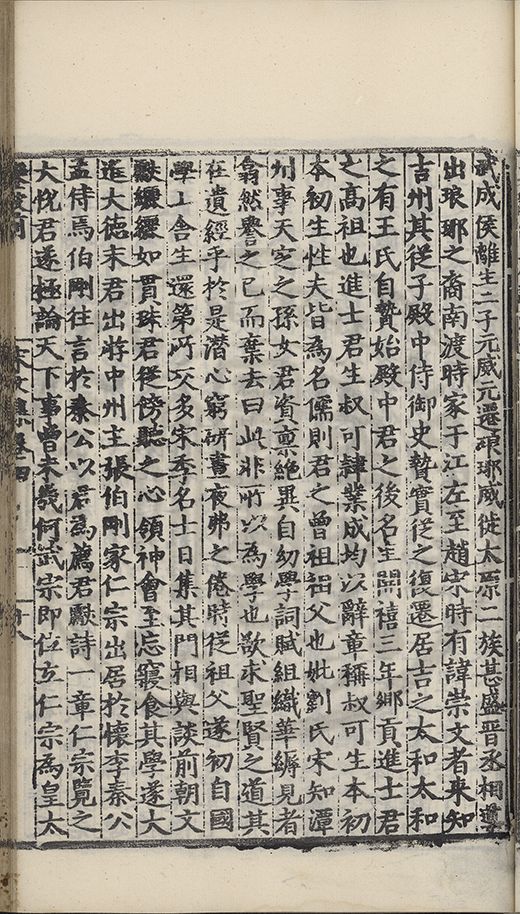 武成侯離生二子元威元遷琅瑘威徙太原二族甚盛晋丞相導
出琅瑘之裔南渡時家于江左至趙宋時有諱崇文者来知
吉州其從子殿中侍御史贄實從之復遷居吉之太和太和
之有王氏自贄始殿中君之後名主開禧二年鄉貢進士君
之高祖也進士君生叔可隸業成均以辭章稱叔可生本初
本初生性夫皆為名儒則君之曾祖祖父也妣劉氏宋知潭
州事天定之孫女君資禀絶異自幼學詞賦組織華縟見者
翕然譽之已而棄去曰此非所以為學也欲求聖賢之道其
在遺經乎於是潜心窮研晝夜弗之倦時從祖父遂初自國
學上舍生還第所交多宋季名士日集其門相與談前朝文
獻纚纚如貫珠君從傍聽之心領神會至忘寢食其學遂大
進大徳末君出游中州主張伯剛家仁宗出居於懷李秦公
孟侍焉伯剛往言於秦公以君為薦君獻詩一章仁宗覽之
大悅君遂極論天下事曾未幾何武宗即位立仁宗為皇太
宋文集卷四